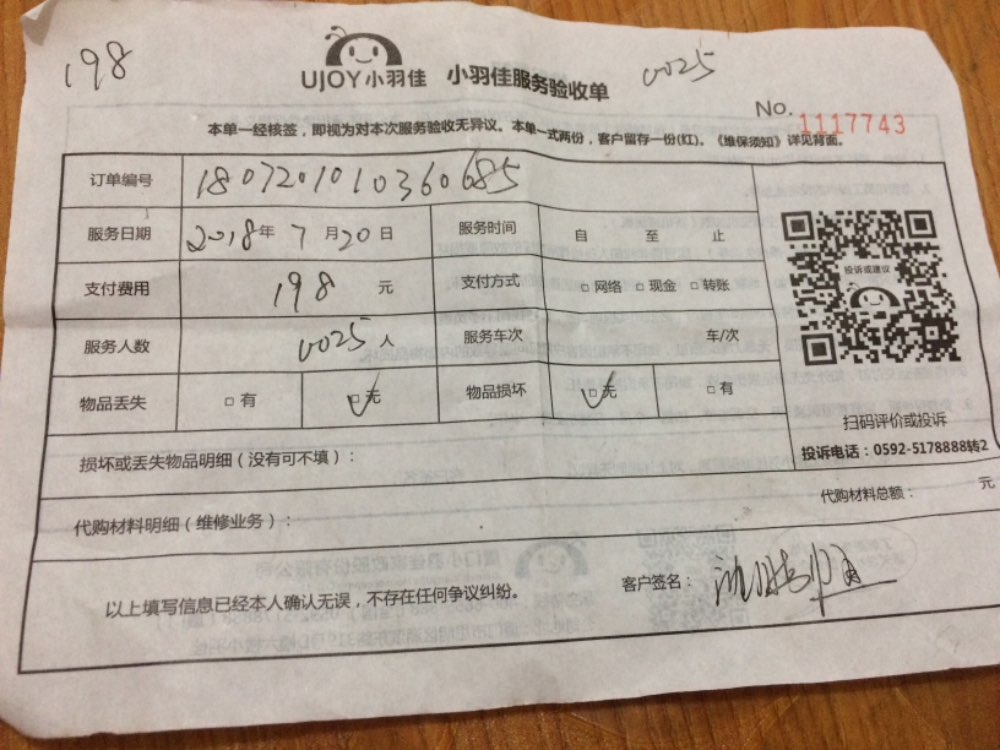 198
UJOY小羽佳 小羽佳服务验收单
0025
No. 1117743
本单一经核签，即视为对本次服务验收无异议。本单一式两份，客户留存一份(红)。《维保须知》详见背面。
订单编号 1807201010360685
服务日期 2018年7月20日 服务时间 自 至 止
支付费用 198 元 支付方式 □网络 □现金 □转账
服务人数 0025人 服务车次 车/次
物品丢失 □有 □无 物品损坏 □无 □有
投诉或建议
扫码评价或投诉
投诉电话：0592-5178888转2
损坏或丢失物品明细（没有可不填）：
代购材料明细（维修业务）： 代购材料总额： 元
以上填写信息已经本人确认无误，不存在任何争议纠纷。 客户签名：